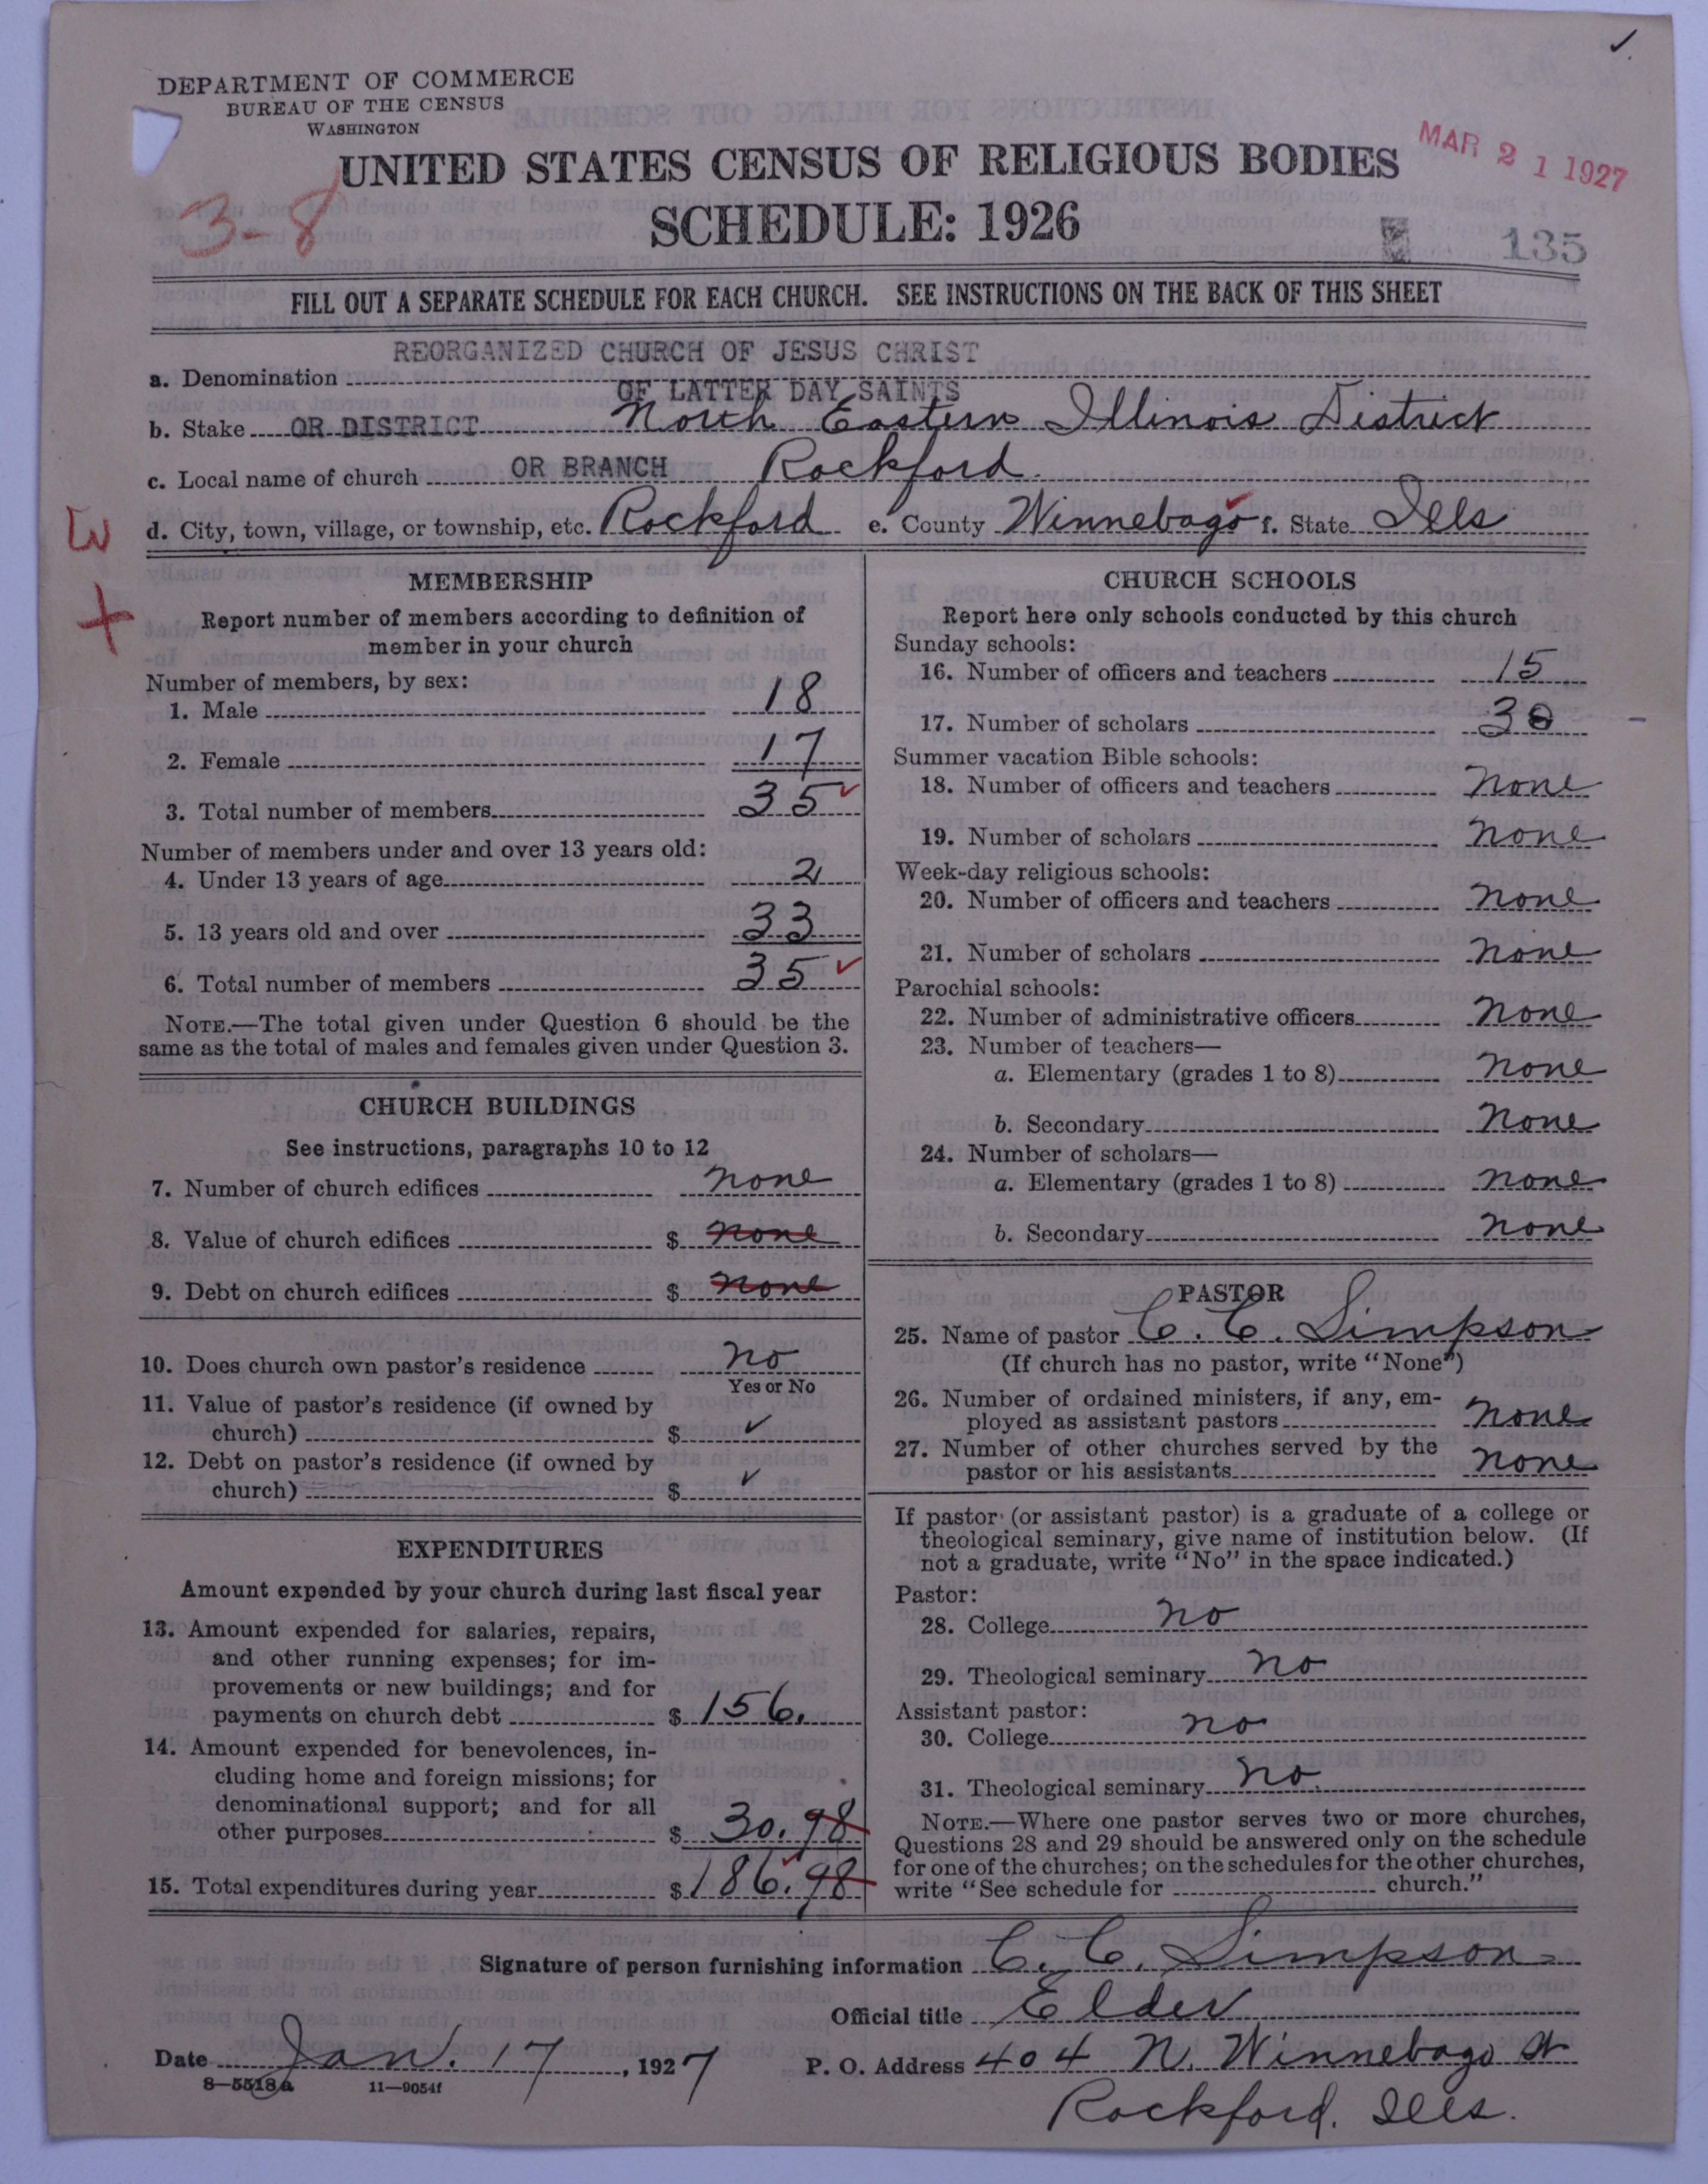 DEPARTMENT OF COMMERCE
BUREAU OF THE CENSUS
WASHINGTON
UNITED STATES CENSUS OF RELIGIOUS BODIES
SCHEDULE: 1926
MAR 21 1927
3-8
135
FILL OUT A SEPARATE SCHEDULE FOR EACH CHURCH. SEE INSTRUCTIONS ON THE BACK OF THIS SHEET
REORGANIZED CHURCH OF JESUS CHRIST
a. Denomination
OF LATTER DAY SAINTS
b. Stake OR DISTRICT North Eastern Illinois District
c. Local name of church OR BRANCH Rockford
d. City, town, village, or township, etc. Rockford e. County Winnebago f. State Ills
MEMBERSHIP
Report number of members according to definition of
member in your church
Number of members, by sex:
1. Male 18
2. Female 17
3. Total number of members 35
Number of members under and over 13 years old:
4. Under 13 years of age 2
5. 13 years old and over 33
6. Total number of members 35
NOTE.—The total given under Question 6 should be the
same as the total of males and females given under Question 3.
CHURCH BUILDINGS
See instructions, paragraphs 10 to 12
7. Number of church edifices none
8. Value of church edifices $ none
9. Debt on church edifices $ none
10. Does church own pastor's residence no
Yes or No
11. Value of pastor's residence (if owned by
church) $ ✓
12. Debt on pastor's residence (if owned by
church) $ ✓
EXPENDITURES
Amount expended by your church during last fiscal year
13. Amount expended for salaries, repairs,
and other running expenses; for im-
provements or new buildings; and for
payments on church debt $ 156.
14. Amount expended for benevolences, in-
cluding home and foreign missions; for
denominational support; and for all
other purposes $ 30.98
15. Total expenditures during year $ 186.98
CHURCH SCHOOLS
Report here only schools conducted by this church
Sunday schools:
16. Number of officers and teachers 15
17. Number of scholars 30
Summer vacation Bible schools:
18. Number of officers and teachers none
19. Number of scholars none
Week-day religious schools:
20. Number of officers and teachers none
21. Number of scholars none
Parochial schools:
22. Number of administrative officers none
23. Number of teachers—
a. Elementary (grades 1 to 8) none
b. Secondary none
24. Number of scholars—
a. Elementary (grades 1 to 8) none
b. Secondary none
PASTOR
25. Name of pastor C. C. Simpson
(If church has no pastor, write "None")
26. Number of ordained ministers, if any, em-
ployed as assistant pastors none
27. Number of other churches served by the
pastor or his assistants none
If pastor (or assistant pastor) is a graduate of a college or
theological seminary, give name of institution below. (If
not a graduate, write "No" in the space indicated.)
Pastor:
28. College no
29. Theological seminary no
Assistant pastor:
30. College no
31. Theological seminary no
NOTE.—Where one pastor serves two or more churches,
Questions 28 and 29 should be answered only on the schedule
for one of the churches; on the schedules for the other churches,
write "See schedule for church."
Signature of person furnishing information C. C. Simpson
Official title Elder
Date Jan. 17, 1927 P. O. Address 404 N. Winnebago St
8—5518a 11—9054f
Rockford. Ills.